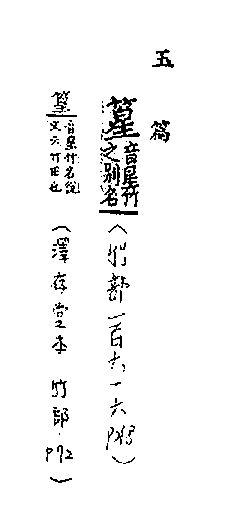 五篇
篂 音星竹
之別名 (竹部一百六十六
音竹名說
文云竹田也 (澤存堂本 竹部.P72)